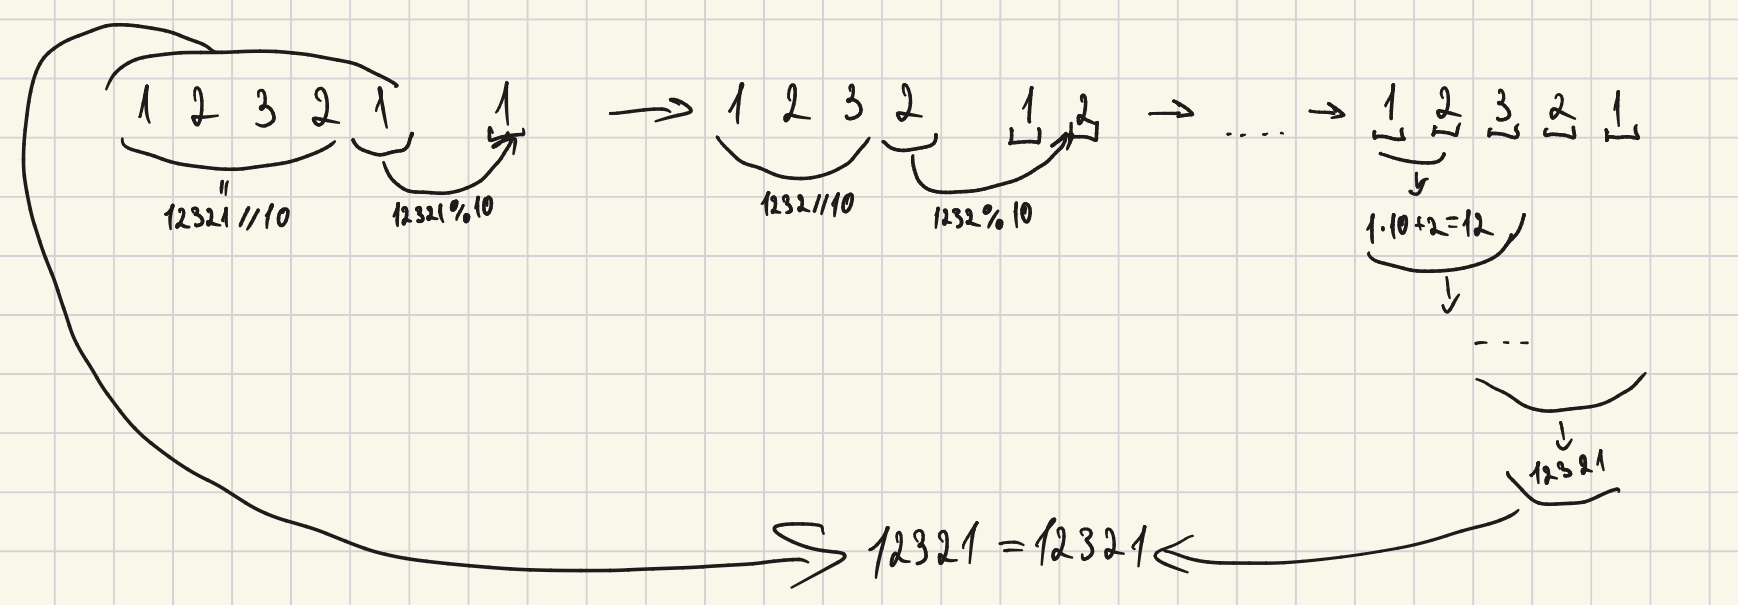 1 2 3 2 1 1 → 1 2 3 2 1 2 → ..... → 1 2 3 2 1
12321//10 12321%10 1232//10 1232%10
1·10+2=12
---
12321
12321 = 12321